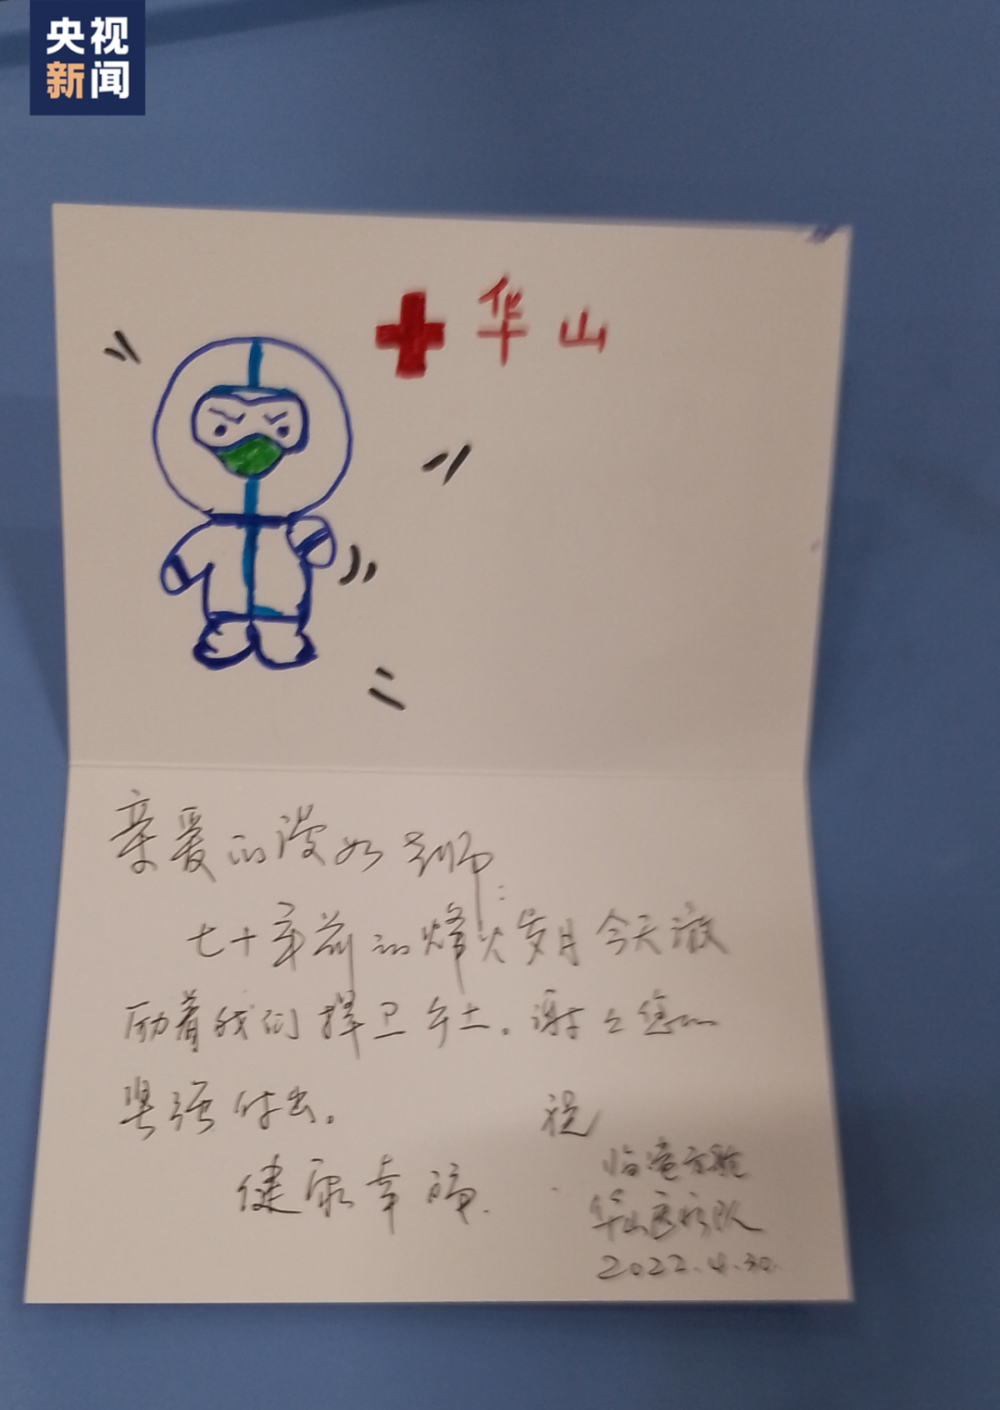 央视
新闻
华山
亲爱的漫如老师:
七十年前的烽火岁月今天激
励着我们捍卫乡土。谢谢您的
坚强付出。 祝
健康幸福.
临港方舱
华山医疗队
2022.4.30.